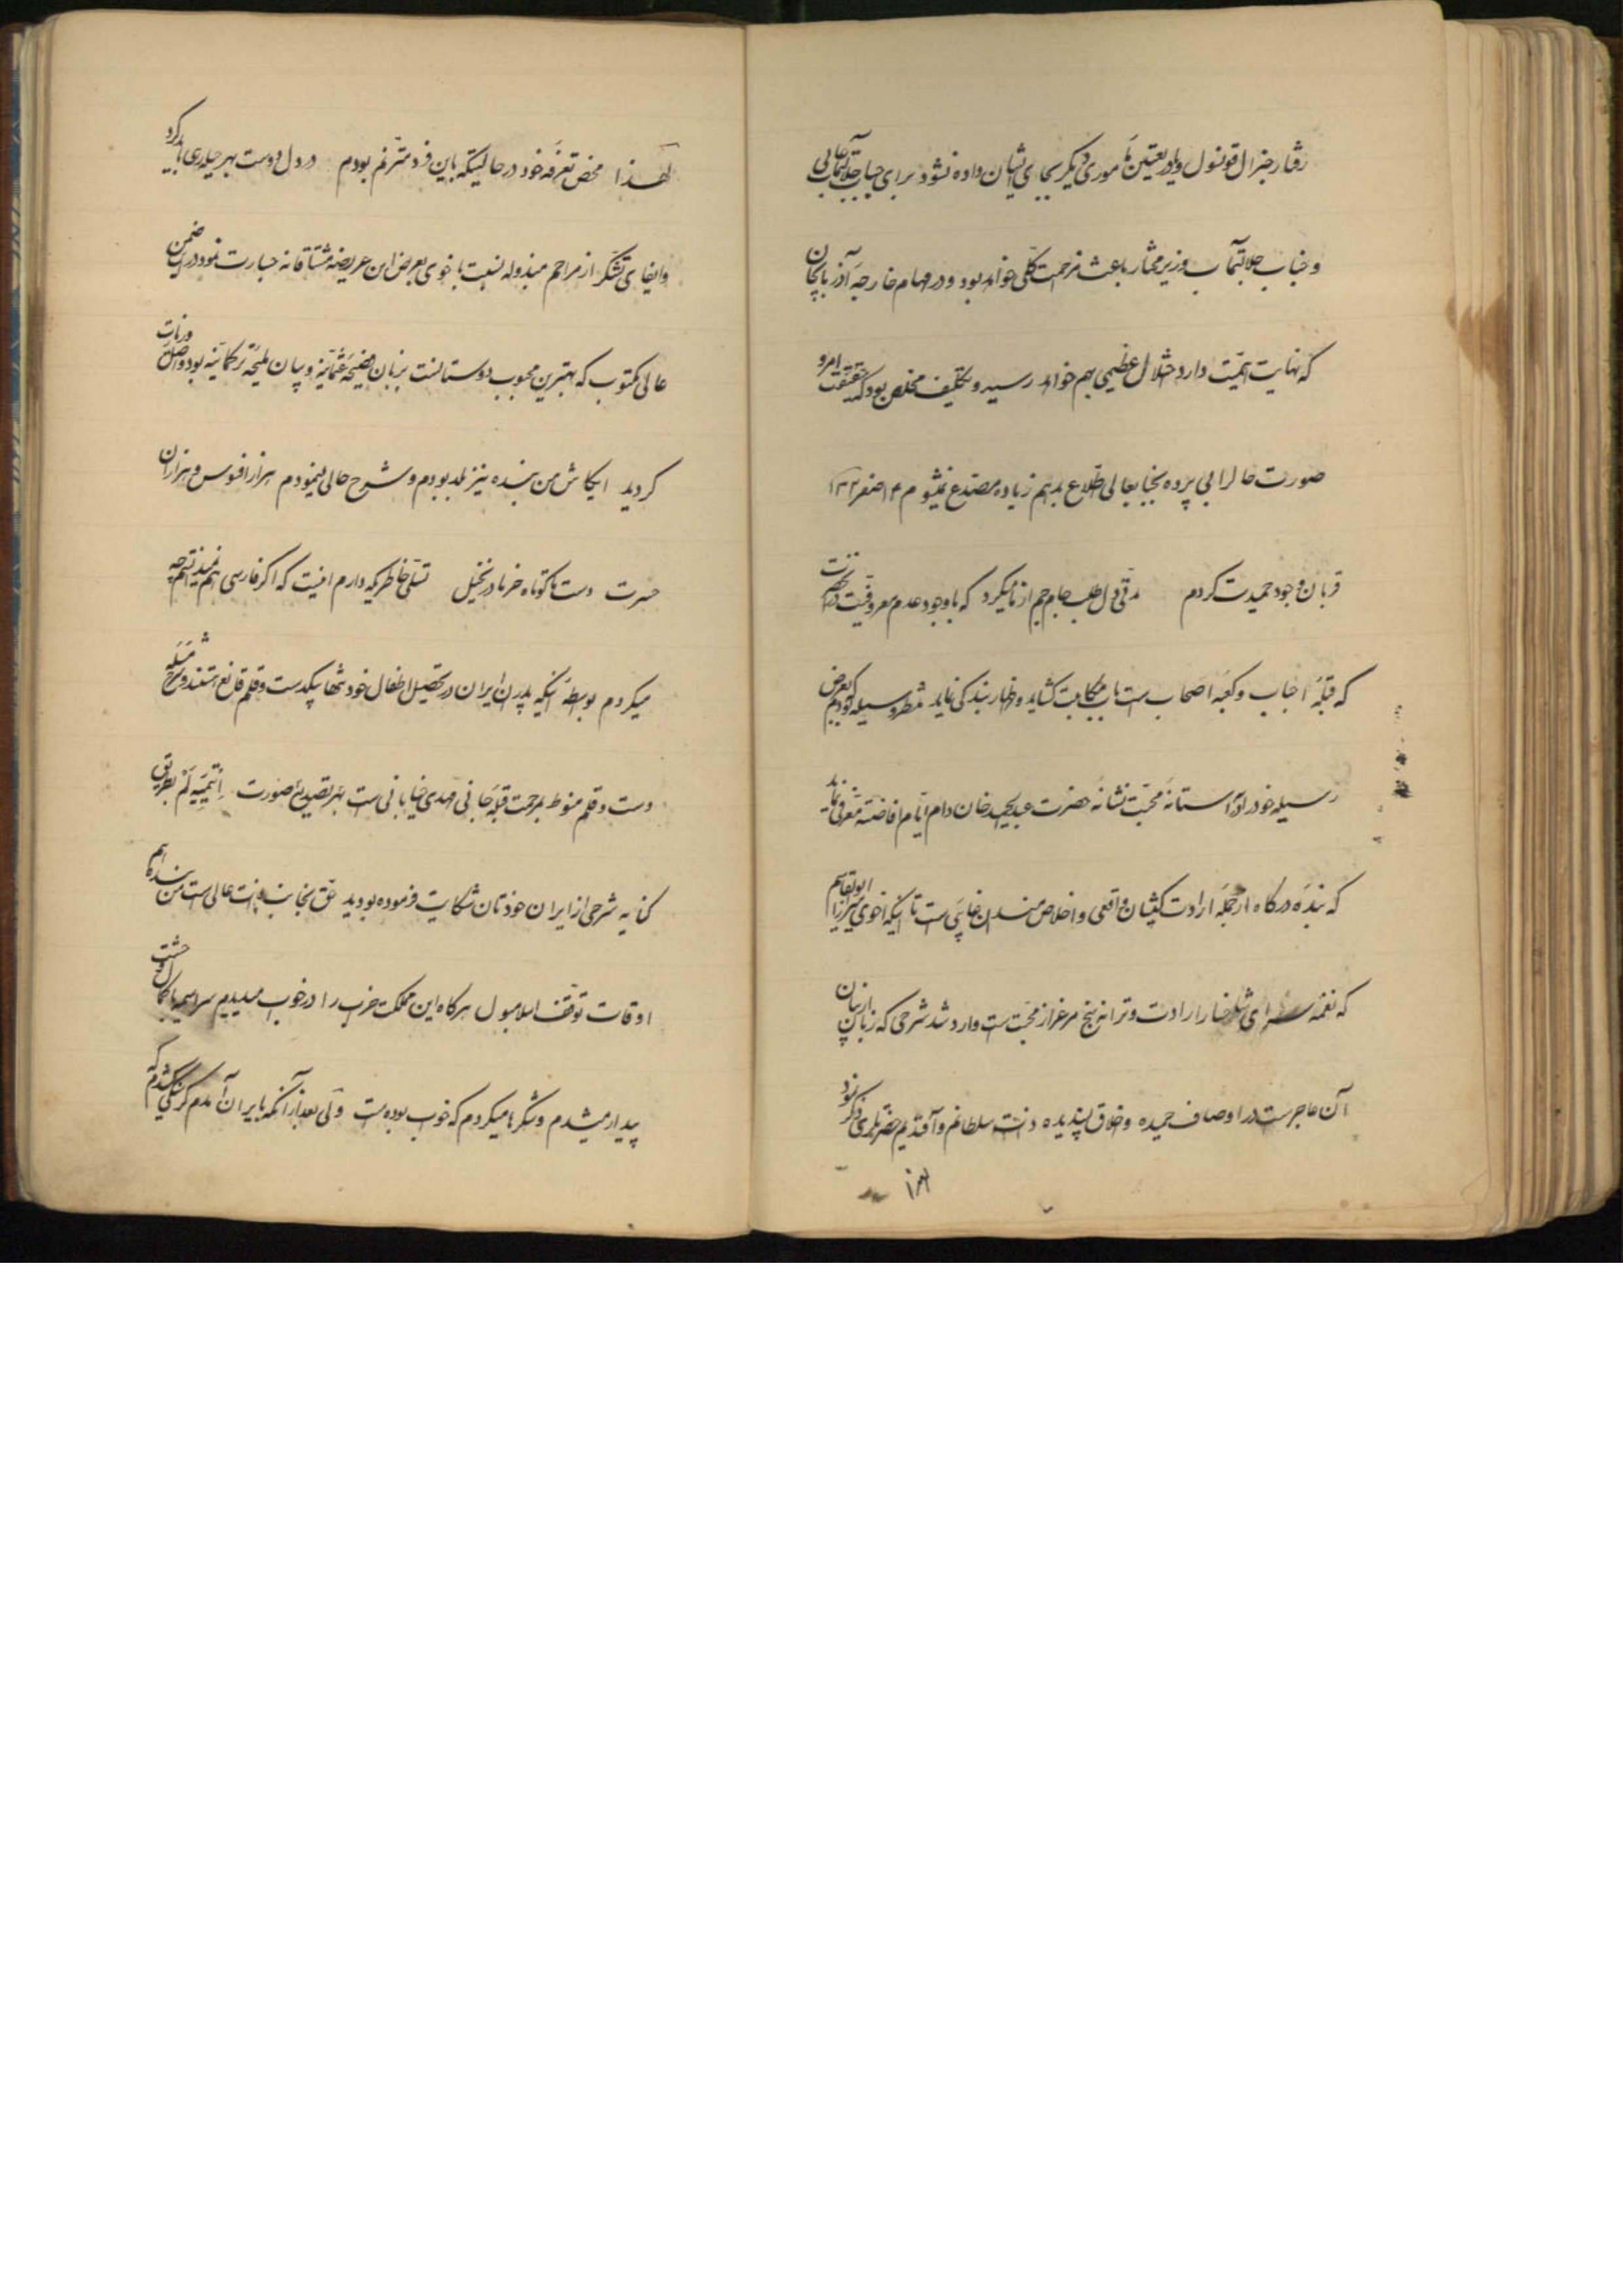 رفتار جنرال قونسول و یا بتعیین مأموری دیگر بجای ایشان داده نشود برای جناب جلالتمآب عالی
و جناب جلالتمآب وزیر مختار باعث مزحمت کلی خواهد بود و در مهام خارجه آذربایجان
که نهایت اهمیت دارد اختلال عظیمی بهم خواهد رسید و تکلیف مخلص بود که حقیقت امر و
صورت حال را بی پرده بجنابعالی اطلاع بدهم زیاده مصدع نمیشوم ۱۴ صفر
قربان وجود حمیدت کردم مدتی دل طلب جام جم از ما میکرد که با وجود عدم معروفیت در نزد
که قبله احباب و کعبه اصحاب است باب مکاتبت کشاید و اظهار بندکی نماید منتظر وسیله بودیم که بعرض
رسیله خود را در آستانه محبت نشانه حضرت عبدالحمید خان دام ایام افاضته معرفی نماید
که بنده درکاه از جمله ارادت کیشان واقعی و اخلاص مندان غایبی است تا اینکه اخوی میرزا ابوالقاسم
که نغمه سرای شاخسار ارادت و ترانه سنج مرغزار محبت است وارد شد شرحی که زبان از بیان
آن عاجز است در اوصاف حمیده و اخلاق پسندیده ذات سلطانم و آفندیم حضرتلری ذکر نمود
لهذا محض تعرفه خود در حالیکه باین فرد مترنم بودم در دل دوست بهر حیله رهی باید کرد
و ایفای تشکر از مراحم مبذوله نسبت باخوی بعرض این عریضه مشتاقانه جسارت نمود در این ضمن
عالی مکتوب که بهترین محبوب دوستانست بزبان فصیحه عثمانیه و بیان ملیحه ترکمانیه بود واصل و زیارت
کردید ایکاش من بنده نیز بلد بودم و شرح حالی مینمودم هزار افسوس و هزاران
حسرت دست ما کوتاه خرما در نخیل تسلی خاطریکه دارم اینست که اگر فارسی هم نمیدانستم چه
میکردم بواسطه اینکه پدران ایران در تحصیل اطفال خود تنها بیکدست و قلم قانع هستند و شرح مسئله
دست و قلم منوط بمرحمت قبله جانی مهدی خیابانی است بهر تصدیع صورت بطریق
کنایه شرحی از ایران خودتان شکایت فرموده بودید حق بجانب ذات عالی است من بنده هم
اوقات توقف اسلامبول هرکاه این مملکت خراب را در خواب میدیدم سراسیمه با کمال وحشت
بیدار میشدم و شکرها میکردم که خواب بوده است ولی بعد از آنکه بایران آمدم